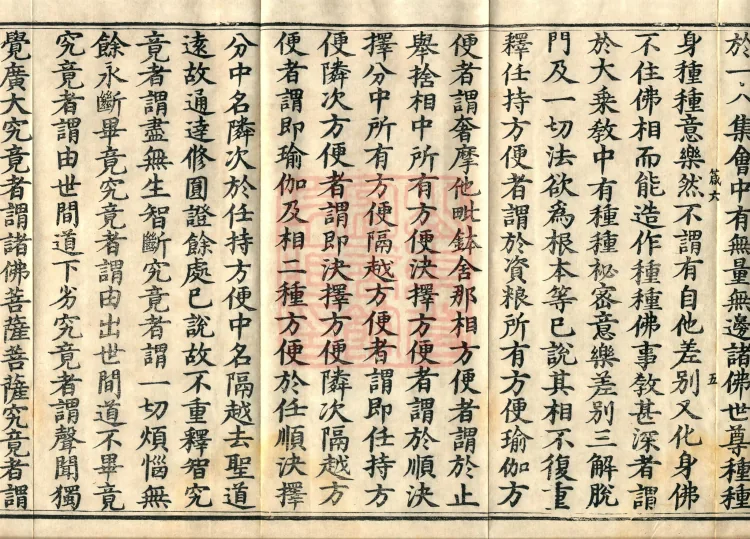 於一八集會中有無量無邊諸佛世尊種種
身種種意樂然不謂有自他差別又化身佛
箴六 五
不住佛相而能造作種種佛事教甚深者謂
於大乘教中有種種祕密意樂差別三解脫
門及一切法欲爲根本等已說其相不復重
釋任持方便者謂於資粮所有方便瑜伽方
便者謂奢摩他毗鉢舍那相方便者謂於止
舉捨相中所有方便決擇方便者謂於順決
擇分中所有方便隔越方便者謂即任持方
便隣次方便者謂即決擇方便隣次隔越方
便者謂即瑜伽及相二種方便於任順決擇
分中名隣次於任持方便中名隔越去聖道
遠故通達修圓證餘處已說故不重釋智究
竟者謂盡無生智斷究竟者謂一切煩惱無
餘永斷畢竟究竟者謂由出世間道不畢竟
究竟者謂由世間道下劣究竟者謂聲聞獨
覺廣大究竟者謂諸佛菩薩菩薩究竟者謂